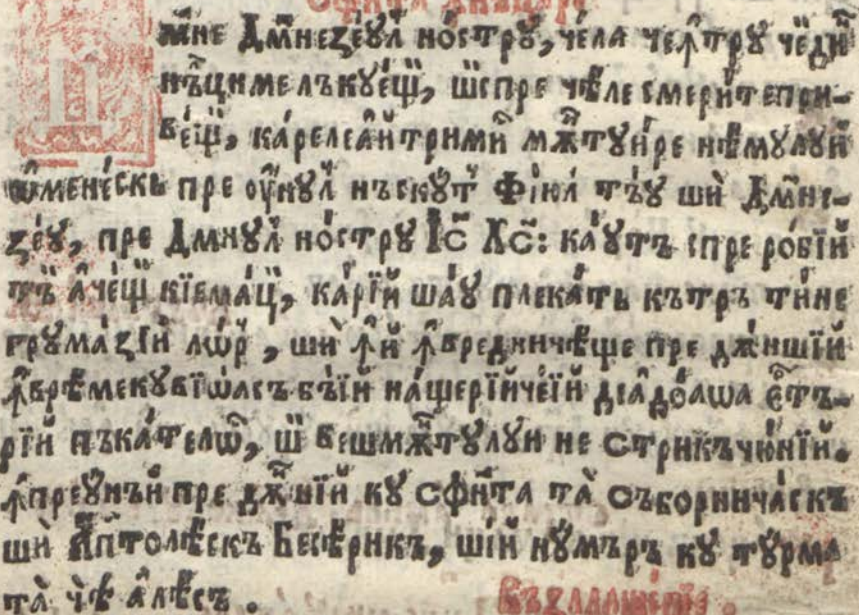 Сфи́та Ли́тꙋрг
Дм҃не Дм҃неꙁе́ꙋл но́стрꙋ, че́ла че ꙟ҆трꙋ че́ди
нъ́ци ме лъкꙋе́щй, шѝ спре чѣ́ле смери́те при-
ве́щй, ка́реле а́й трими́с мѫ̑нтꙋи́ре нѣ́мꙋлꙋй
ѡ҆мене́скь пре ᲂу҆́нꙋл нъскꙋ́т Фі́юл тъ́ꙋ шѝ Дм҃не-
ꙁе́ꙋ, пре Дм҃нꙋл но́стрꙋ І҆с҃ Хс҃: ка́ꙋтъ спре ро́бїй
тъ́й а҆че́щй кїема́цй, ка́рїй ша́ꙋ плека́ть кътръ ти́не
грꙋма́ꙁїй лѡ́р, шѝ ꙟ҆́й ꙟ҆вредничѣ́ще пре дѫ́ншїй
ꙟ҆ врѣ́ме кꙋвїѡ́асъ бъ́їй на́щерїй че́ій дїа до́аѡа є҆ртъ-
рїй пъка́телѡр, шѝ вешмѫ́нтꙋлꙋй не стрикъчю́нїй.
ꙟ҆преꙋ́нъй пре дѫ́ншїй кꙋ сфѫ́нта та̀ съборнича́скъ
шѝ а҆п҇толѣ́скъ Бесѣ́рикъ, шїй нꙋ́мъръ кꙋ тꙋ́рма
та̀ чѣ̀ а҆лѣ́съ.
Въꙁглаше́нїе.